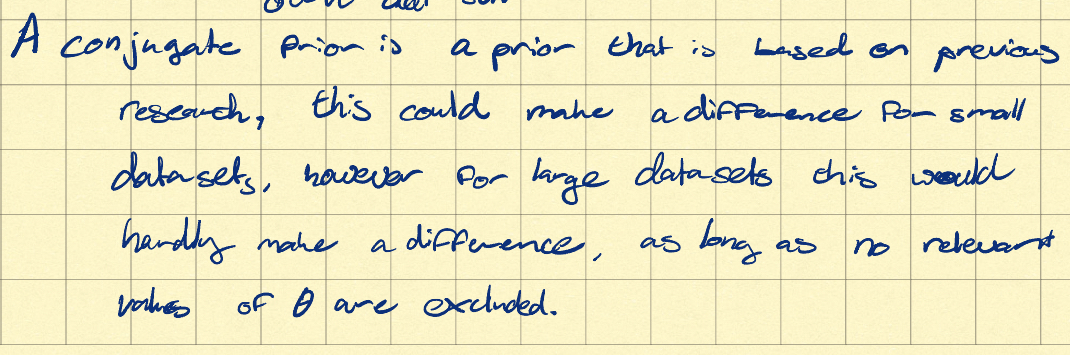 A conjugate prior is a prior that is based on previous
research, this could make a difference for small
datasets, however for large datasets this would
hardly make a difference, as long as no relevant
values of θ are excluded.